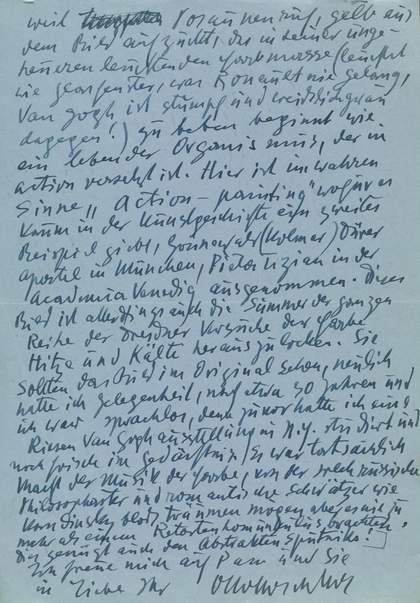 weil Posaunenruf, gelb aus
dem Bild aufzuckt, das in seiner unge-
heueren leuchtenden Farbmasse (leuchtet
wie Glasfenster, was Rouault nie gelang,
Van Gogh ist stumpf und weisslichgrau
dagegen!) zu beben beginnt wie
ein lebender Organismus, der in
action versetzt ist. Hier ist im wahren
Sinne „Action-painting" wofür es
kaum in der Kunstgeschichte ein zweites
Beispiel giebt, Grünewald (Kolmar) Dürer
Apostel in München, Pieta Tizian in der
Academia Venedig ausgenommen. Dieses
Bild ist allerdings auch die Summe der ganzen
Reihe der Dresdner Versuche der Farbe
Hitze und Kälte herauszulocken. Sie
sollten das Bild im Original sehen, neulich
hatte ich Gelegenheit, nach etwa 30 Jahren und
ich war sprachlos, denn zuvor hatte ich eine
Riesen Van Gogh ausstellung in N.Y. studiert und
noch frisch im Gedächtnis. Es war tatsächlich
Macht der Musik der Farbe, von der solch russische
Philosophaster und romantische Schwätzer wie
Kandinsky bloß träumen mögen, aber nie zu
mehr als einem Retortenhomunkulus brachten.
Dies genügt auch den Abstrakten Sputniks!
Ich freue mich auf und Sie
in Liebe Ihr OKokoschka